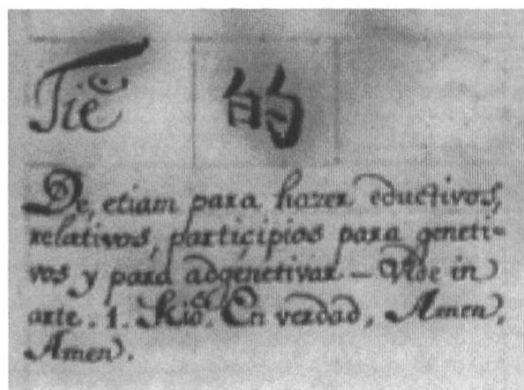 Tiĕ 的
De, etiam para hazer eductivos,
relativos, participios para geneti-
vos y para adgenetivar - Vide in
arte. 1. Kió. En verdad, Amen,
Amen.